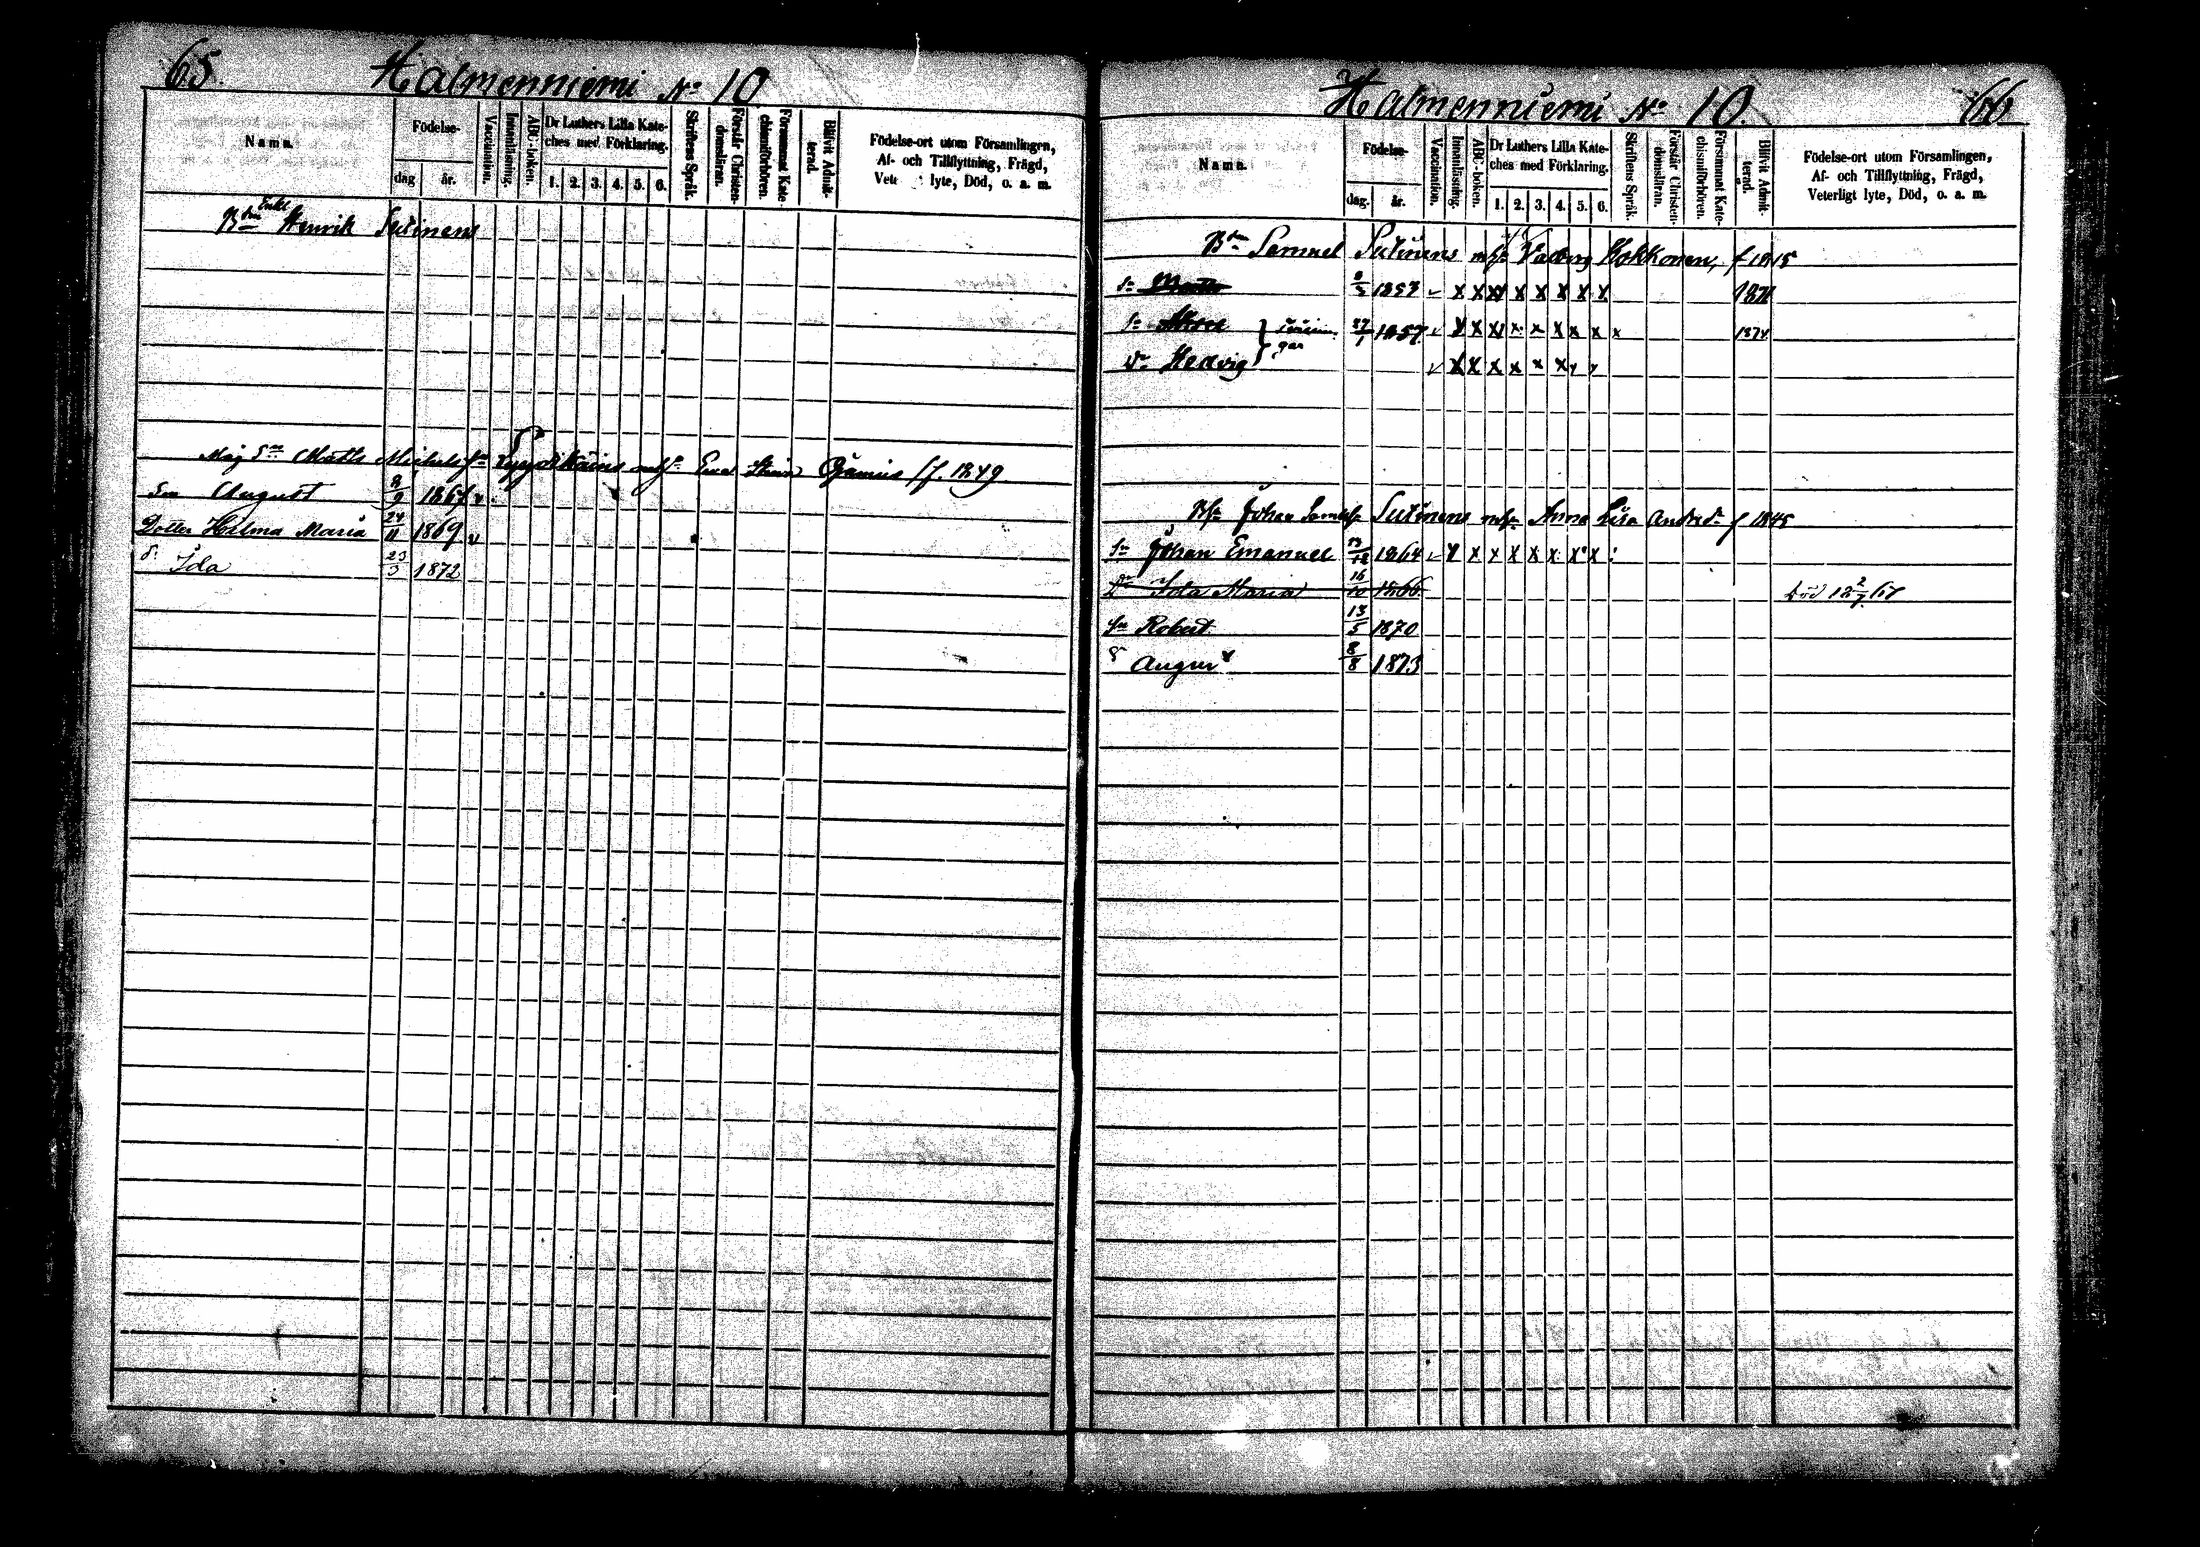 65. Halmenniemi No 10
Namn.
Födelse-
dag
år.
Vaccination.
Innanläsning.
ABC-boken.
Dr Luthers Lilla Kate-
ches med Förklaring.
1. 2. 3. 4. 5. 6.
Skriftens Språk.
Förstår Christen-
domsläran.
Försummat Kate-
chismiförhören.
Blifvit Admit-
terad.
Födelse-ort utom Församlingen,
Af- och Tillflyttning, Frägd,
lyte, Död, o. a. m.
Enkl
Bdn Henrik Sutinens
Måg Matts Eva Stina f. 1849
Sn August 8/9 1867 v
Dotter Hilma Maria 24/11 1869 v
d. Ida 23/3 1872
Halmenniemi No 10. 66
Namn.
Födelse-
dag.
år.
Vaccination.
Innanläsning.
ABC-boken.
Dr Luthers Lilla Kate-
ches med Förklaring.
1. 2. 3. 4. 5. 6.
Skriftens Språk.
Förstår Christen-
domsläran.
Försummat Kate-
chismiförhören.
Blifvit Admit-
terad.
Födelse-ort utom Församlingen,
Af- och Tillflyttning, Frägd,
Veterligt lyte, Död, o. a. m.
Bdn Samuel Sutinens Valborg Kokkonen, f 1815
Sn 1853 v x x x x x x x x
Sn 27/1 1857 v x x x x x x x x x 1874
Dr Hedvig v x x x x x x x x
Johan Sutinens Anna Lisa Andrsdr f 1845
Sn Johan Emanuel 13/12 1864 v x x x x x x x x
Dr Ida Maria 16/10 1866 Död
Sn Robert 13/5 1870
S August 8/8 1873